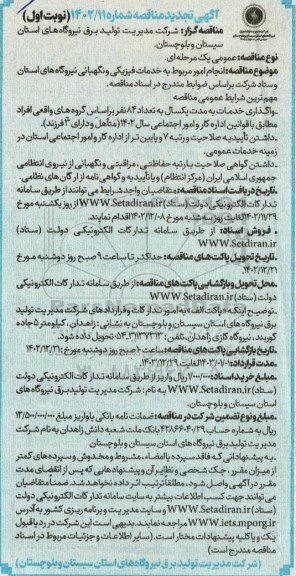 آگهی تجدید مناقصه شماره ۱۴۰۲/۱۱ (نوبت اول)
مناقصه گزار: شرکت مدیریت تولید برق نیروگاه های استان
سیستان و بلوچستان.
نوع مناقصه: عمومی یک مرحله ای.
موضوع مناقصه: انجام امور مربوط به خدمات فیزیکی و نگهبانی نیروگاه های استان
و ستاد شرکت براساس ضوابط مندرج در اسناد مناقصه.
مهم ترین شرایط عمومی مناقصه
.واگذاری خدمات به مدت یکسال به تعداد ۸۴ نفر براساس گروه های واقعی افراد
مطابق با قوانین اداره کار و امور اجتماعی سال ۱۴۰۲ (متأهل و دارای ۳ فرزند).
.داشتن تأییدیه صلاحیت و رتبه ۷ و پایین تر از اداره کار و امور اجتماعی استان در
زمینه خدمات عمومی.
.داشتن گواهی صلاحیت یا رتبه حفاظتی، مراقبتی و نگهبانی از نیروی انتظامی
جمهوری اسلامی ایران (مرکز انتظام) و یا تأییدیه و گواهی نامه از ارگان های نظامی.
.تاریخ دریافت اسناد مناقصه: متقاضیان واجد شرایط می توانند از طریق سامانه
تدارکات الکترونیکی دولت (ستاد) WWW.Setadiran.ir از روز یکشنبه مورخ
۱۴۰۲/۱۱/۲۹ لغایت روز سه شنبه مورخ ۱۴۰۲/۱۲/۰۸ اقدام نمایند.
. فروش اسناد: از طریق سامانه تدارکات الکترونیکی دولت (ستاد)
WWW.Setadiran.ir
.تاریخ تحویل پاکت های مناقصه: حداکثر تا ساعت ۹ صبح روز دوشنبه مورخ
۱۴۰۲/۱۲/۲۱.
.محل تحویل و بازگشایی پاکت های مناقصه: از طریق سامانه تدارکات الکترونیکی
دولت (ستاد) WWW.Setadiran.ir
.توضیح اینکه «پاکت الف» به امور تدارکات و قراردادهای شرکت مدیریت تولید
برق نیروگاه های استان سیستان و بلوچستان به نشانی: زاهدان، کیلومتر ۵ جاده
کورین، نیروگاه گازی زاهدان، تلفن: تحویل داده شود.
.تاریخ بازگشایی پاکت های مناقصه: ساعت ۱۰ صبح روز دوشنبه مورخ: ۱۴۰۲/۱۲/۲۱
مدت قرارداد: ۱۴۰۳/۰۱/۰۱ لغایت ۱۴۰۳/۱۲/۳۰
.مبلغ خرید اسناد: ریال واریز از طریق سامانه تدارکات الکترونیکی دولت
(ستاد) WWW.Setadiran.ir به نام: شرکت مدیریت تولید برق نیروگاه های
استان سیستان و بلوچستان
.مبلغ و نوع تضمین شرکت در مناقصه: ضمانت نامه بانکی یا واریز مبلغ
ریال به شماره حساب بانک ملت شعبه دانش زاهدان به نام شرکت
مدیریت تولید برق نیروگاه های استان سیستان و بلوچستان
.به پیشنهاداتی که فاقد سپرده یا امضاء، مشروط و مخدوش و سپرده های کمتر
از میزان مقرر، چک شخصی و نظایر آن و پیشنهادهایی که پس از انقضای مدت
مقرر در آگهی واصل شود، مطلقا ترتیب اثر داده نخواهد شد. ضمناً متقاضیان
می توانند جهت کسب اطلاعات بیشتر به سایت سامانه تدارکات الکترونیکی دولت
(ستاد) WWW.Setadiran.ir و سایت مدیریت و برنامه ریزی کشور به آدرس
WWW.iets.mporg.ir مراجعه نمایند. بدیهی است این شرکت در رد یا قبول
یک و یا کلیه پیشنهادات مختار است. (سایر اطلاعات و جزئیات مربوط در اسناد
مناقصه مندرج است)
(شرکت مدیریت تولید برق نیروگاه های استان سیستان و بلوچستان)